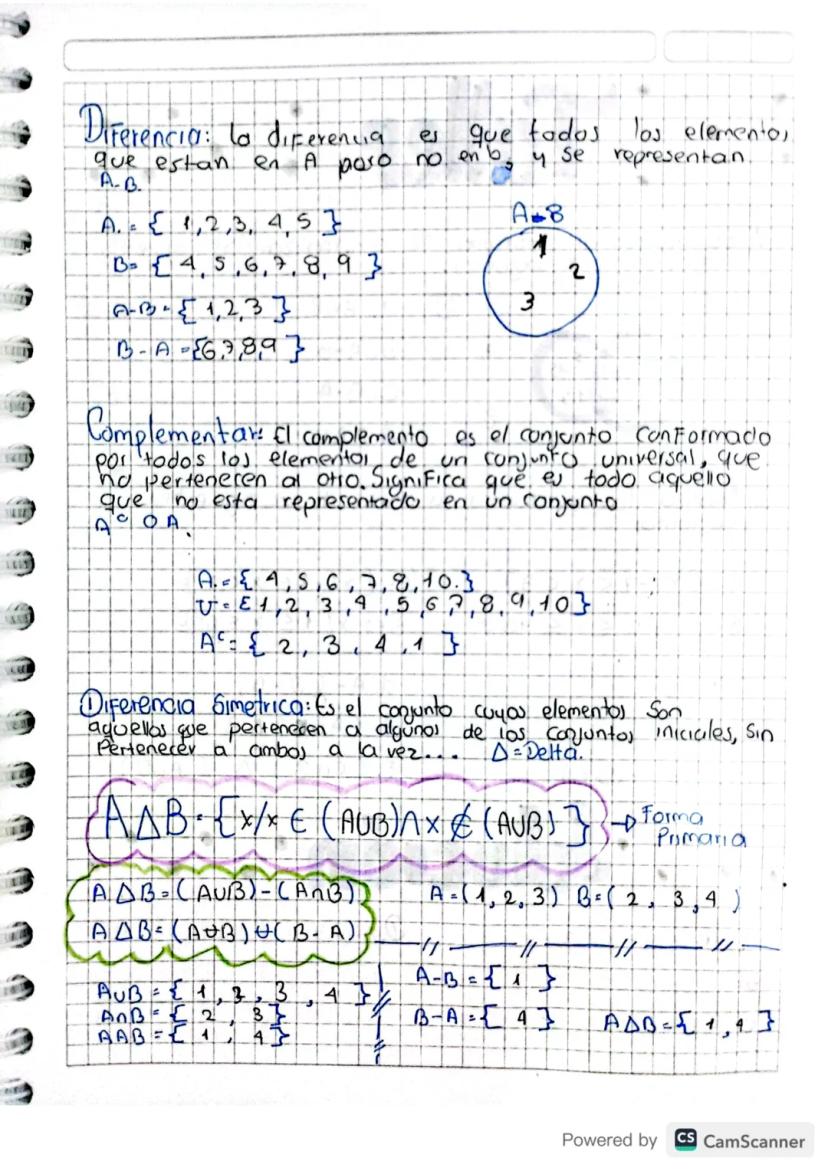 Diferencia: la diferencia es que todos los elementos
que estan en A paso no en b, y se representan
A-B.
A. = { 1,2,3, 4,5 }
A-B
1
2
3
B= { 4, 5, 6, 7, 8, 9 }
A-B = { 1,2,3 }
B - A = {6,7,8,9 }
Complementar: El complemento es el conjunto conformado
por todos los elementos de un conjunto universal, que
no perteneren al otro. Significa que es todo aquello
que no esta representado en un conjunto
A^c O A.
A. = { 4, 5, 6, 7, 8, 10. }
U = { 1, 2, 3, 4, 5, 6, 7, 8, 9, 10 }
A^c = { 2, 3, 4, 1 }
Diferencia Simetrica: Es el conjunto cuyos elementos son
aquellos que pertenecen a algunos de los conjuntos iniciales, sin
Pertenecer a ambos a la vez... Δ = Delta.
A Δ B = { x/x ∈ (A∪B) ∩ x ∉ (A∪B) } → Forma
Primaria
A Δ B = (A∪B) - (A∩B)
A = (1, 2, 3) B = ( 2, 3, 4 )
A Δ B = (A B) ( B - A )
A∪B = { 1, 2, 3, 4 }
A∩B = { 2, 3 }
AΔB = { 1, 4 }
A-B = { 1 }
B-A = { 4 }
A Δ B = { 1, 4 }
Powered by CS CamScanner